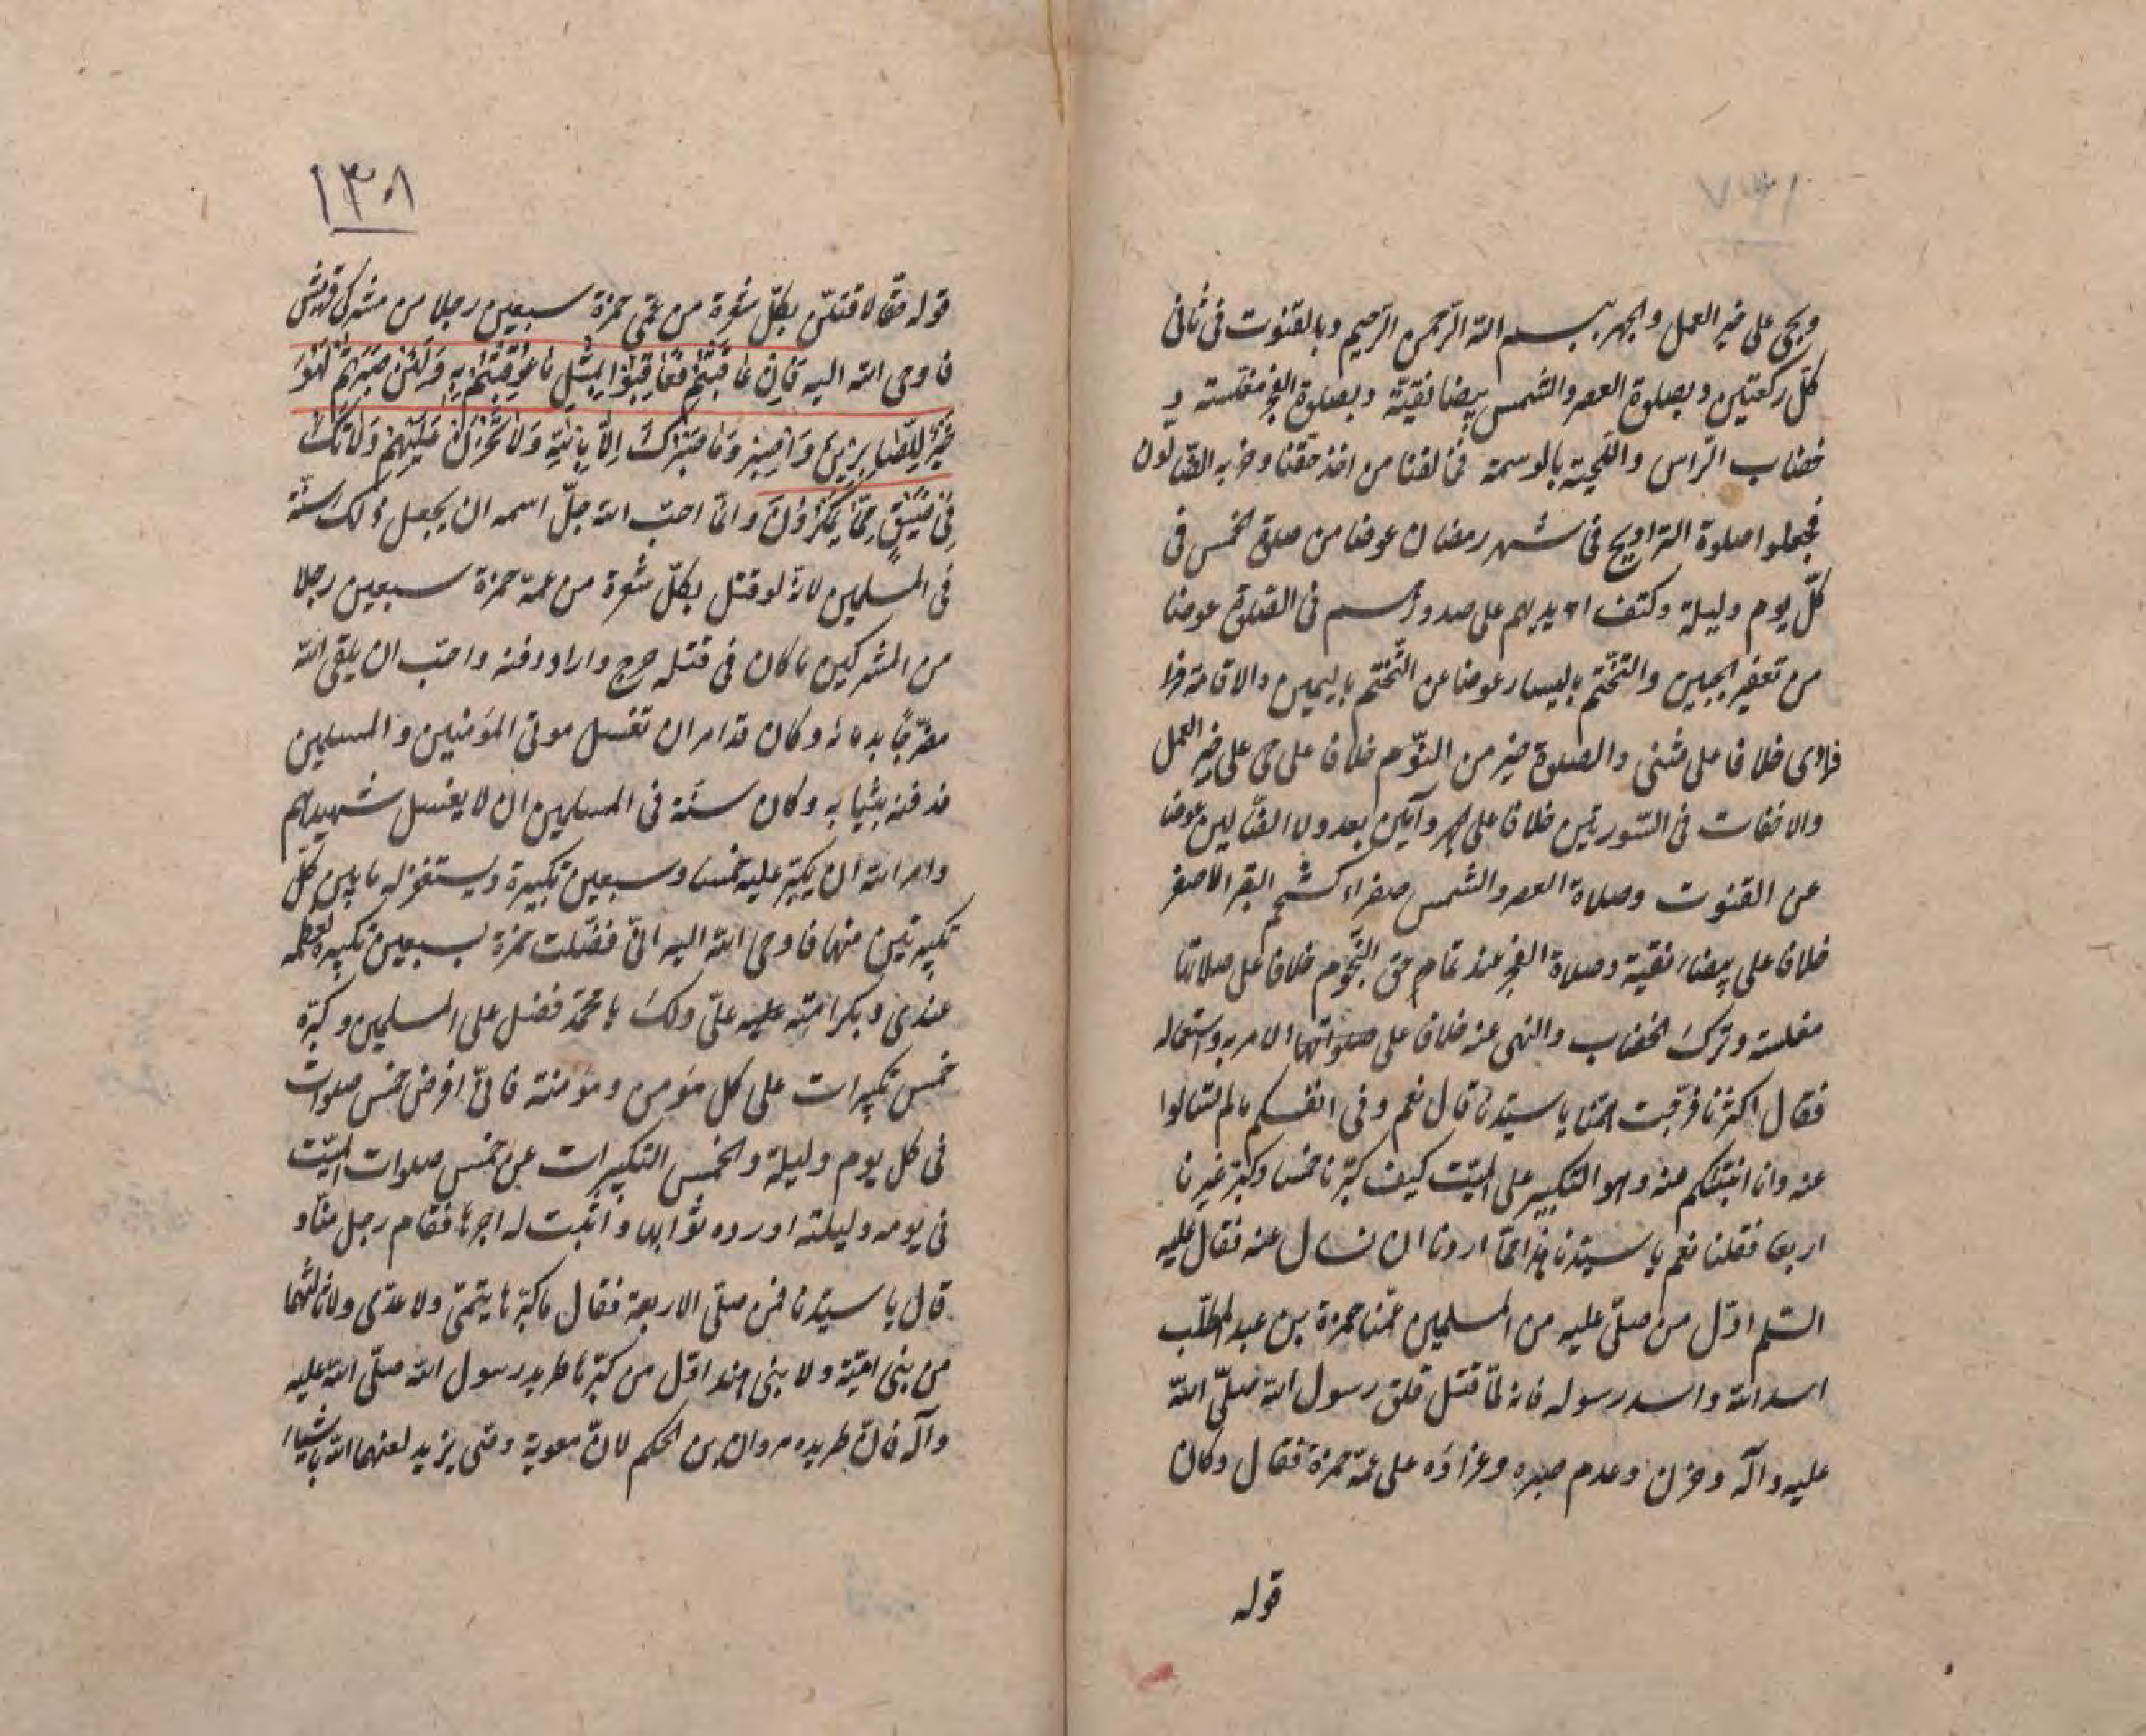 وبحی علی خیر العمل والجهر ببسم الله الرّحمن الرّحیم وبالقنوت فی ثانی
کلّ رکعتین وبصلوة العصر والشمس بیضا نقیّة وبصلوة الفجر مغلسته و
خضاب الرّاس واللّحیته بالوسمة فخالفنا من اخذ حقّنا وحزبه الضّالون
فجعلوا صلوة التراویح فی شهر رمضان عوضا من صلوة الخمس فی
کلّ یوم ولیلة وکتف ایدیهم علی صدورهم فی الصّلوة عوضا
من تعفیر الجبین والتختّم بالیسار عوضا عن التّختّم بالیمین والاقامة فرا
فرادی خلافا علی مثنی والصلوة خیر من النّوم خلافا علی حی علی خیر العمل
والاخفات فی السّورتین خلافا علی الجهر وآمین بعد ولا الضّالین عوضا
عن القنوت وصلاة العصر والشّمس صفراء کشحم البقر الاصفر
خلافا علی بیضاء نقیّة وصلاة الفجر عند تمام حق النّجوم خلافا علی صلاتنا
مغلسة وترک الخضاب والنهی عنه خلاف علی الامر به واستعماله
فقال اکثرنا فرّجت همّنا یا سیّدنا قال نعم وفی انفسکم ما لم تسالوا
عنه وانا انبئکم منه وهو التکبیر علی المیّت کیف کبّرنا خمسا وکبّر غیرنا
اربعا فقلنا نعم یا سیّدنا هذا ممّا اردنا ان نسال عنه فقال علیه
السّلم اوّل من صلّی علیه من المسلمین عمّنا حمزة بن عبد المطّلب
اسد الله واسد رسوله فانه لمّا قتل قلق رسول الله صلّی الله
علیه وآله وحزن وعدم صبره وعزاؤه علی عمّه حمزة فقال وکان
قوله
۱۳۸
قوله حقّا لاقتلنّ بکلّ شعرة من عمّی حمزة سبعین رجلا من مشرکی قریش
فاوحی الله الیه فَاِن عَاقَبْتُمْ فَعَاقِبُوْا بِمِثْلِ مَا عُوْقِبْتُمْ بِهِ وَلَئنْ صَبَرْتُمْ لَهُوَ
خَیْرٌ لِلصَّابِرِیْنَ وَاصْبِرْ وَمَا صَبْرُکَ اِلَّا بِاللّٰهِ وَلَا تَحْزَنْ عَلَیْهِمْ وَلَا تَکُ
فِیْ ضَیْقٍ مِمَّا یَمْکُرُوْنَ وانّما احبّ الله جلّ اسمه ان یجعل ذلک سنّة
فی المسلمین لانّه لو قتل بکلّ شعرة من عمّه حمزة سبعین رجلا
من المشرکین ما کان فی قتله حرج واراد دفنه واحبّ ان یلقی الله
مضرّجًا بدمائه وکان قد امر ان تغسل موتی المؤمنین والمسلمین
فدفنه بثیابه وکان سنّة فی المسلمین ان لا یغسل شهیدهم
وامر الله ان یکبّر علیه خمسا وسبعین تکبیرة ویستغفر له ما بین کلّ
تکبیرتین منها فاوحی الله الیه انّی فضّلت حمزة بسبعین تکبیرة لعظمه
عندی وبکرامته علیه علیّ ولک یا محمّد فضل علی المسلمین وکبّره
خمس تکبیرات علی کل مؤمن ومؤمنة فانّی افرض خمس صلوات
فی کل یوم ولیلة والخمس التکبیرات عن خمس صلوات المیّت
فی یومه ولیلته اورده ثوابها واثبت له اجرها فقام رجل منّا و
قال یا سیّدنا فمن صلّی الاربعة فقال ما کبّرها تیمّی ولا عدّی ولا ثالثهما
من بنی امیّة ولا بنی هند اوّل من کبّرها طرید رسول الله صلّی الله علیه
وآله فانّ طریده مروان بن الحکم لانّ معویة وصّی یزید لعنهما الله باشیاء